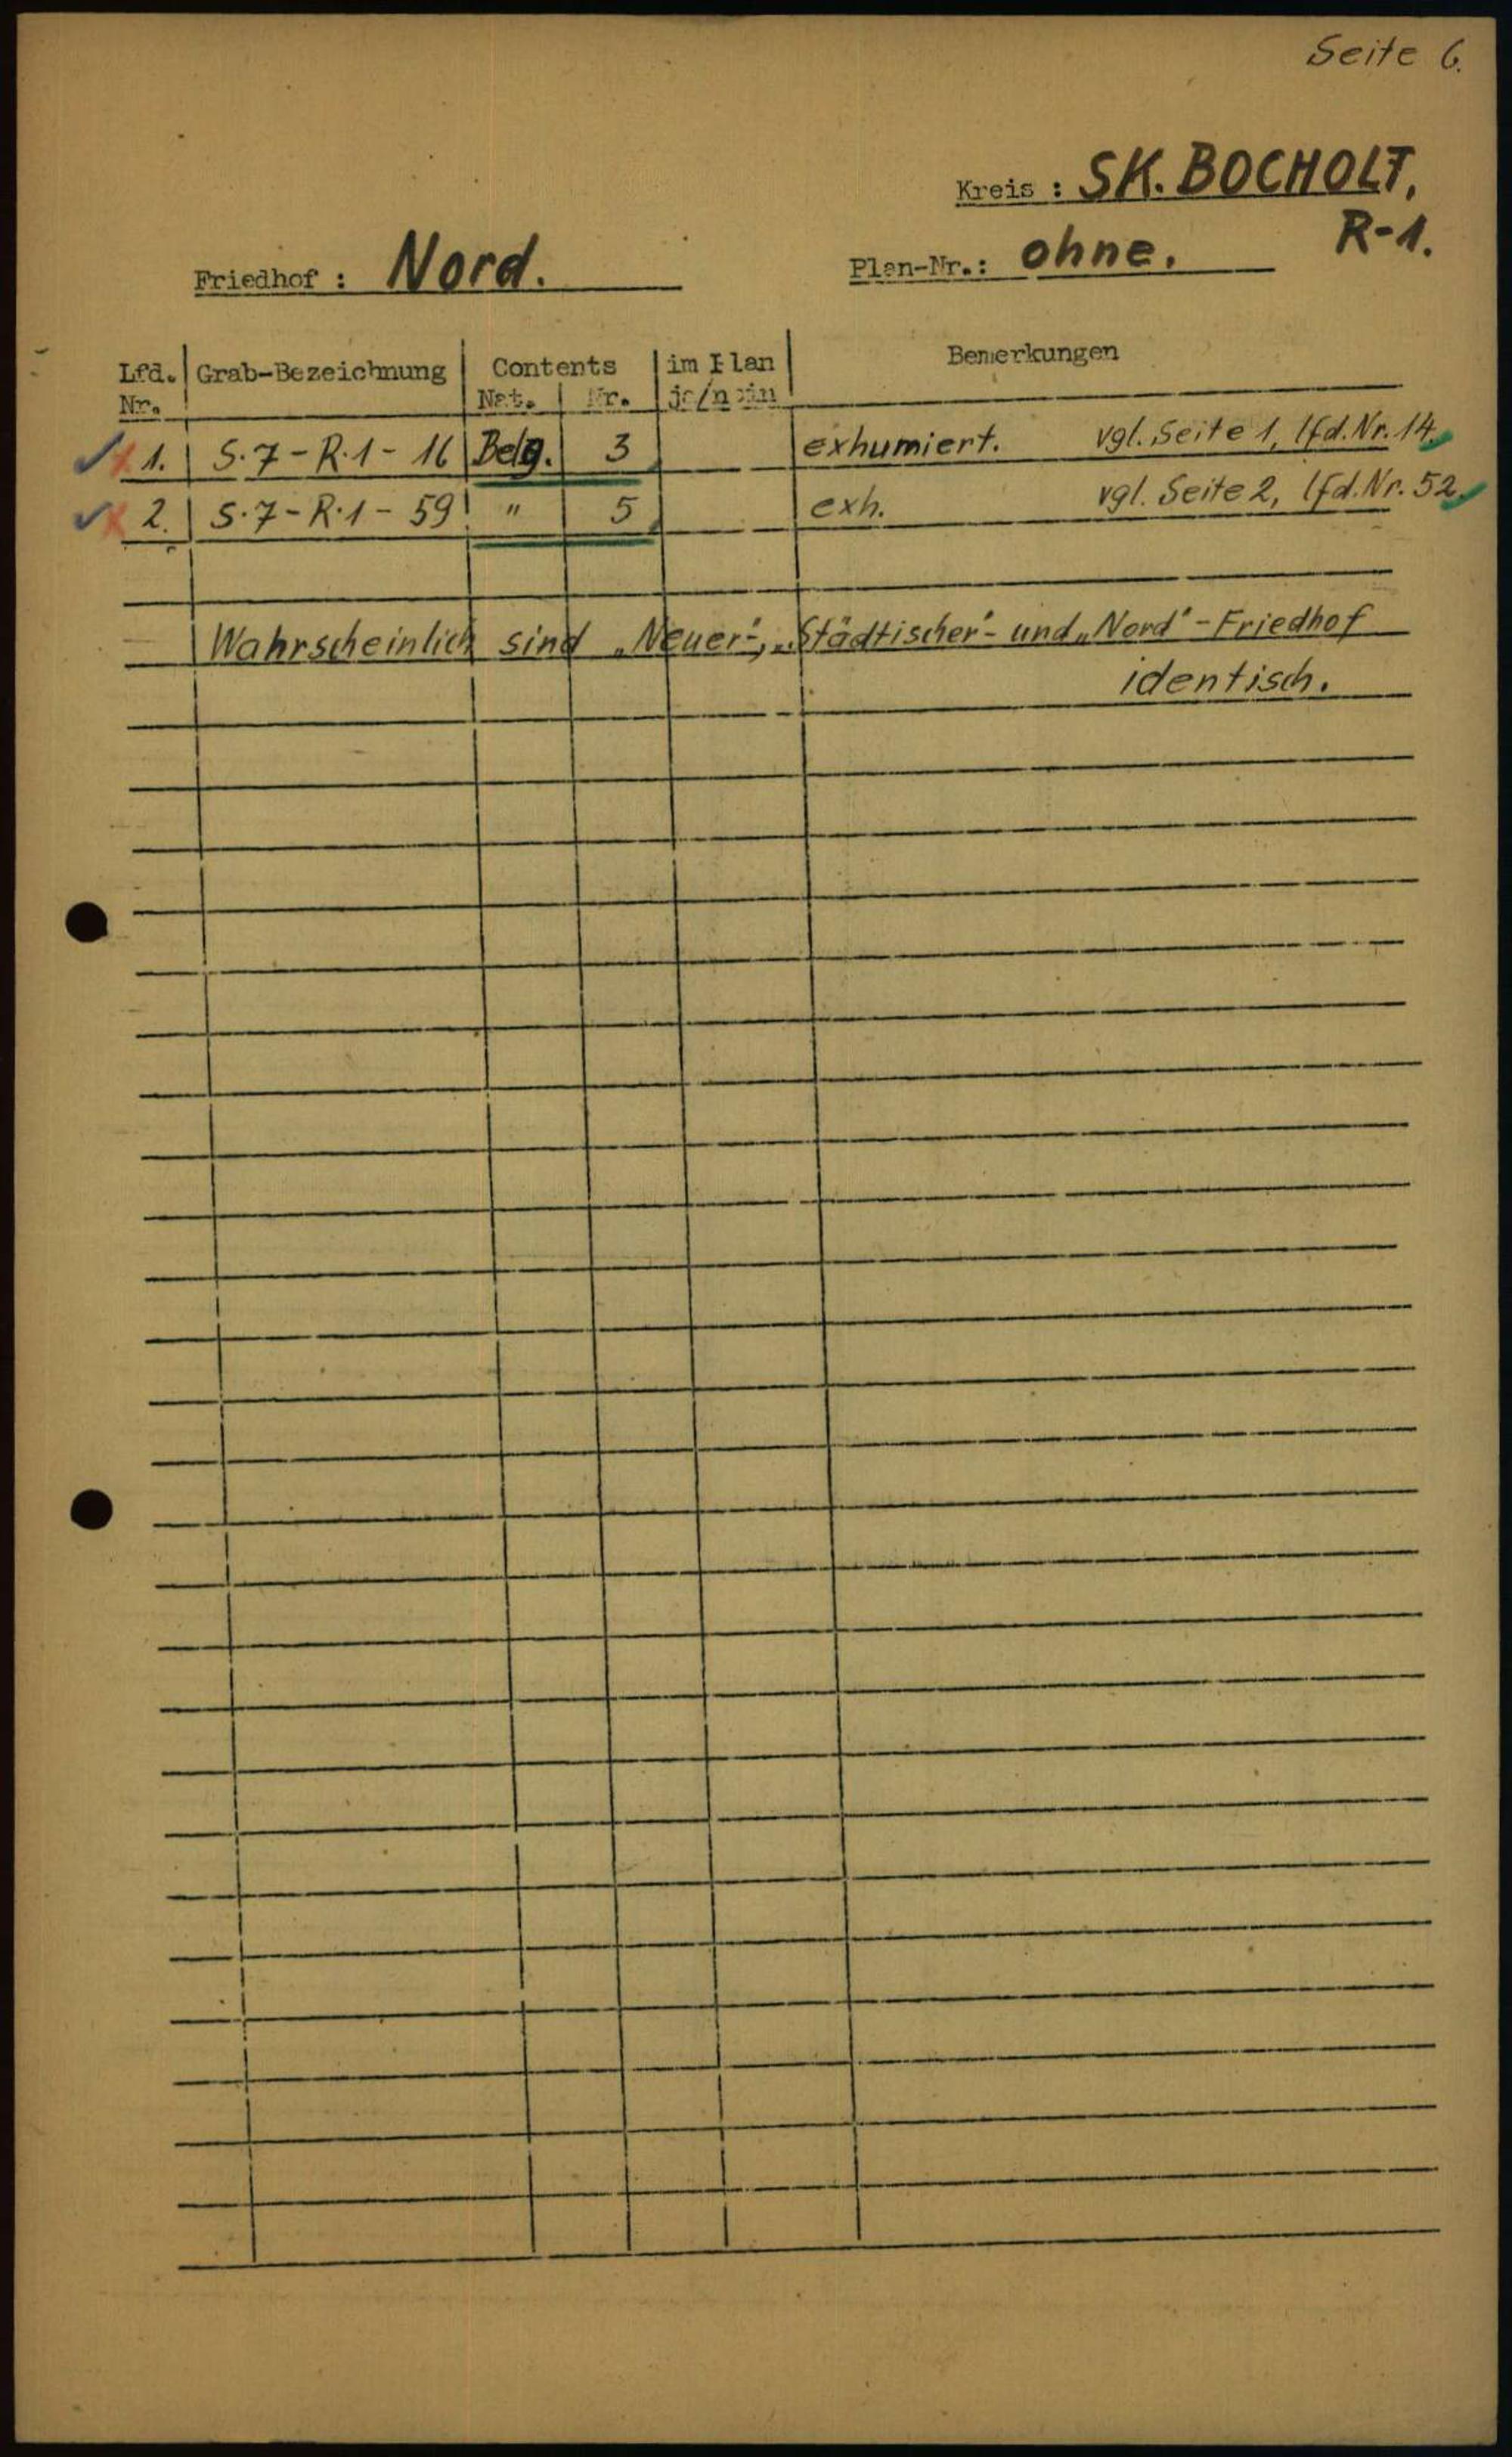 Seite 6.
Kreis: SK. BOCHOLT,
R-1.
Friedhof: Nord.
Plan-Nr.: ohne.
Lfd. Nr. | Grab-Bezeichnung | Contents Nat. Nr. | im Plan ja/nein | Bemerkungen
1. S.7-R.1-16 Belg. 3 exhumiert. vgl. Seite 1, lfd. Nr. 14.
2. S.7-R.1-59 " 5 exh. vgl. Seite 2, lfd. Nr. 52.
Wahrscheinlich sind „Neuer"-, „Städtischer"- und „Nord"-Friedhof
identisch.